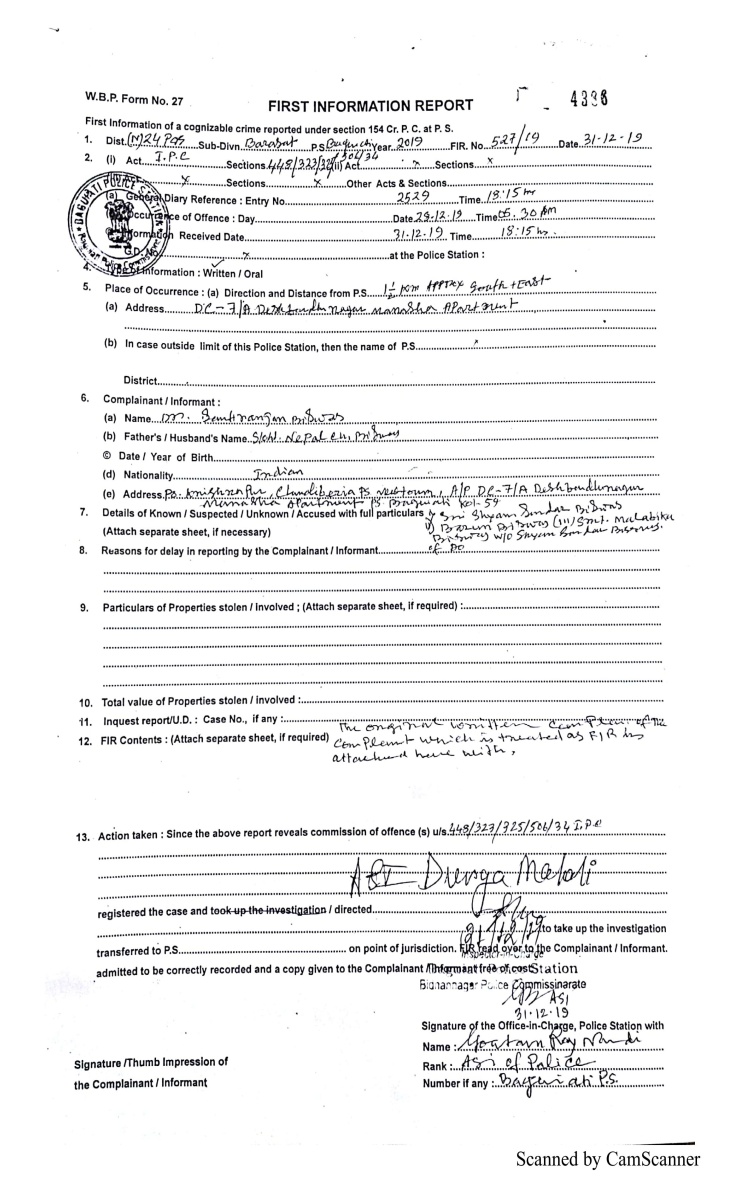 4336
W.B.P. Form No. 27
FIRST INFORMATION REPORT
First Information of a cognizable crime reported under section 154 Cr. P. C. at P. S.
1. Dist. (N) 24 PGS Sub-Divn. Barasat P.S Baguiati Year 2019 FIR. No. 527/19 Date 31-12-19
2. (i) Act I.P.C Sections 448/323/325/506/34 (ii) Act x Sections x
x Sections x Other Acts & Sections
(a) General Diary Reference : Entry No. 2529 Time 18:15 hr
Occurrence of Offence : Day Date 29-12-19 Time 05.30 pm
Information Received Date 31-12-19 Time 18:15 hr.
G.D. No. x at the Police Station :
4. Type of Information : Written / Oral
BAGUIATI POLICE STATION
5. Place of Occurrence : (a) Direction and Distance from P.S. 1½ Km Approx South + East
(a) Address DC-7/A Deshbandhu nagar Manasha Apartment
(b) In case outside limit of this Police Station, then the name of P.S. x
District
6. Complainant / Informant :
(a) Name Biswas
(b) Father's / Husband's Name S/o Lt. Nepal Ch. Biswas
© Date / Year of Birth
(d) Nationality Indian
(e) Address Po. Krishnapur, Chandiberia PS Newtown, A/P DC-7/A Deshbandhunagar
Manasha Apartment PS Baguiati Kol-59
7. Details of Known / Suspected / Unknown / Accused with full particulars i) Sri Shyam Sundar Biswas
(Attach separate sheet, if necessary) Biswas (iii) Smt. Malabika
Biswas W/O Shyam Sundar Biswas.
of PO
8. Reasons for delay in reporting by the Complainant / Informant
9. Particulars of Properties stolen / Involved ; (Attach separate sheet, if required) :
10. Total value of Properties stolen / involved :
11. Inquest report/U.D. : Case No., if any :
12. FIR Contents : (Attach separate sheet, if required) The original written complain of the
complaint which is treated as FIR is
attached here with,
13. Action taken : Since the above report reveals commission of offence (s) u/s. 448/323/325/506/34 I.P.C
ASI Durga
registered the case and took up the investigation / directed
31/12/19 to take up the investigation
transferred to P.S. on point of jurisdiction. FIR read over to the Complainant / Informant.
Inspector-in-Charge
admitted to be correctly recorded and a copy given to the Complainant / Informant free of cost Station
Bidhannagar Police Commissinarate
ASI
31.12.19
Signature of the Office-in-Charge, Police Station with
Name : Goutam Ray Nandi
Rank : ASI of Police
Number if any : Baguiati P.S.
Signature /Thumb Impression of
the Complainant / Informant
Scanned by CamScanner